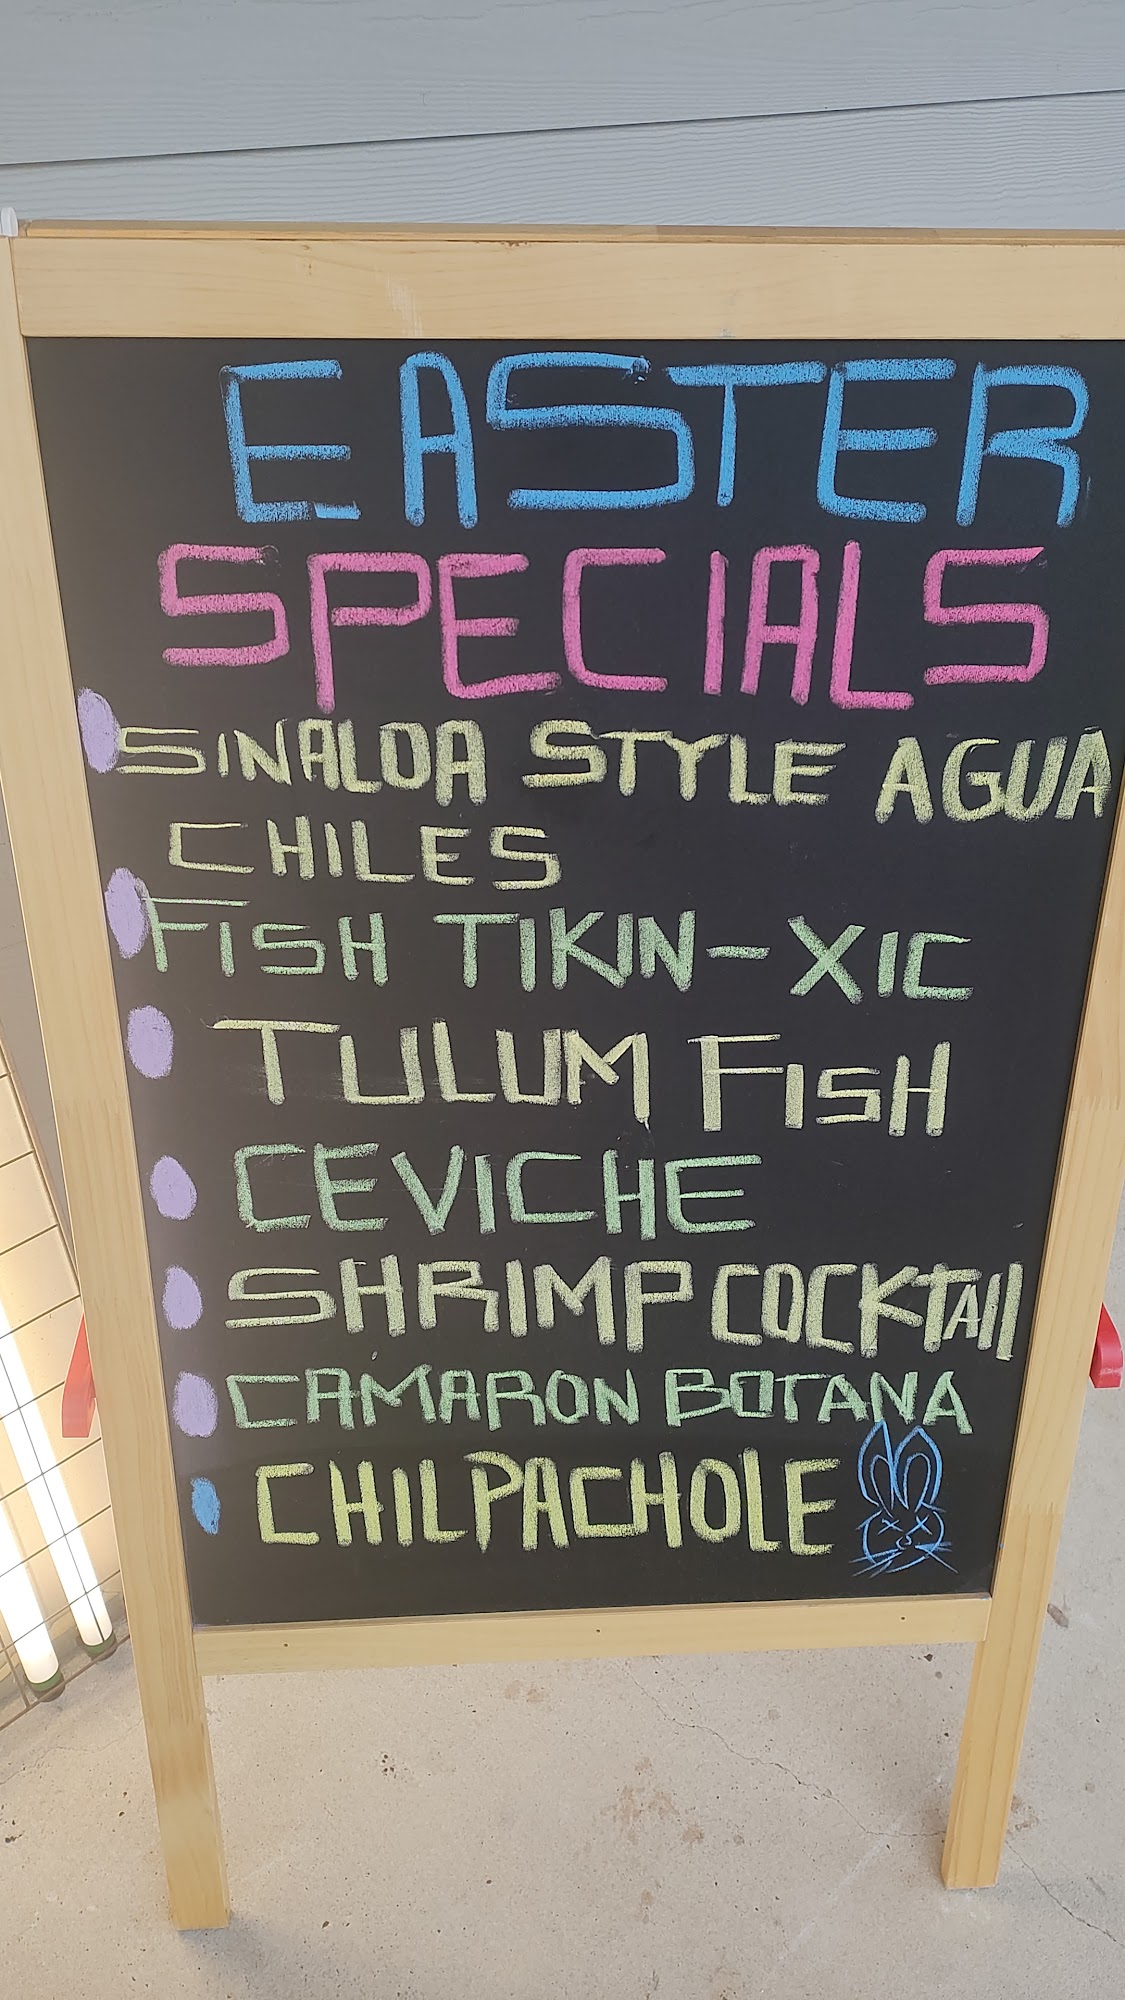 EASTER
SPECIALS
SINALOA STYLE AGUA
CHILES
FISH TIKIN-XIC
TULUM FISH
CEVICHE
SHRIMP COCKTAIL
CAMARON BOTANA
CHILPACHOLE